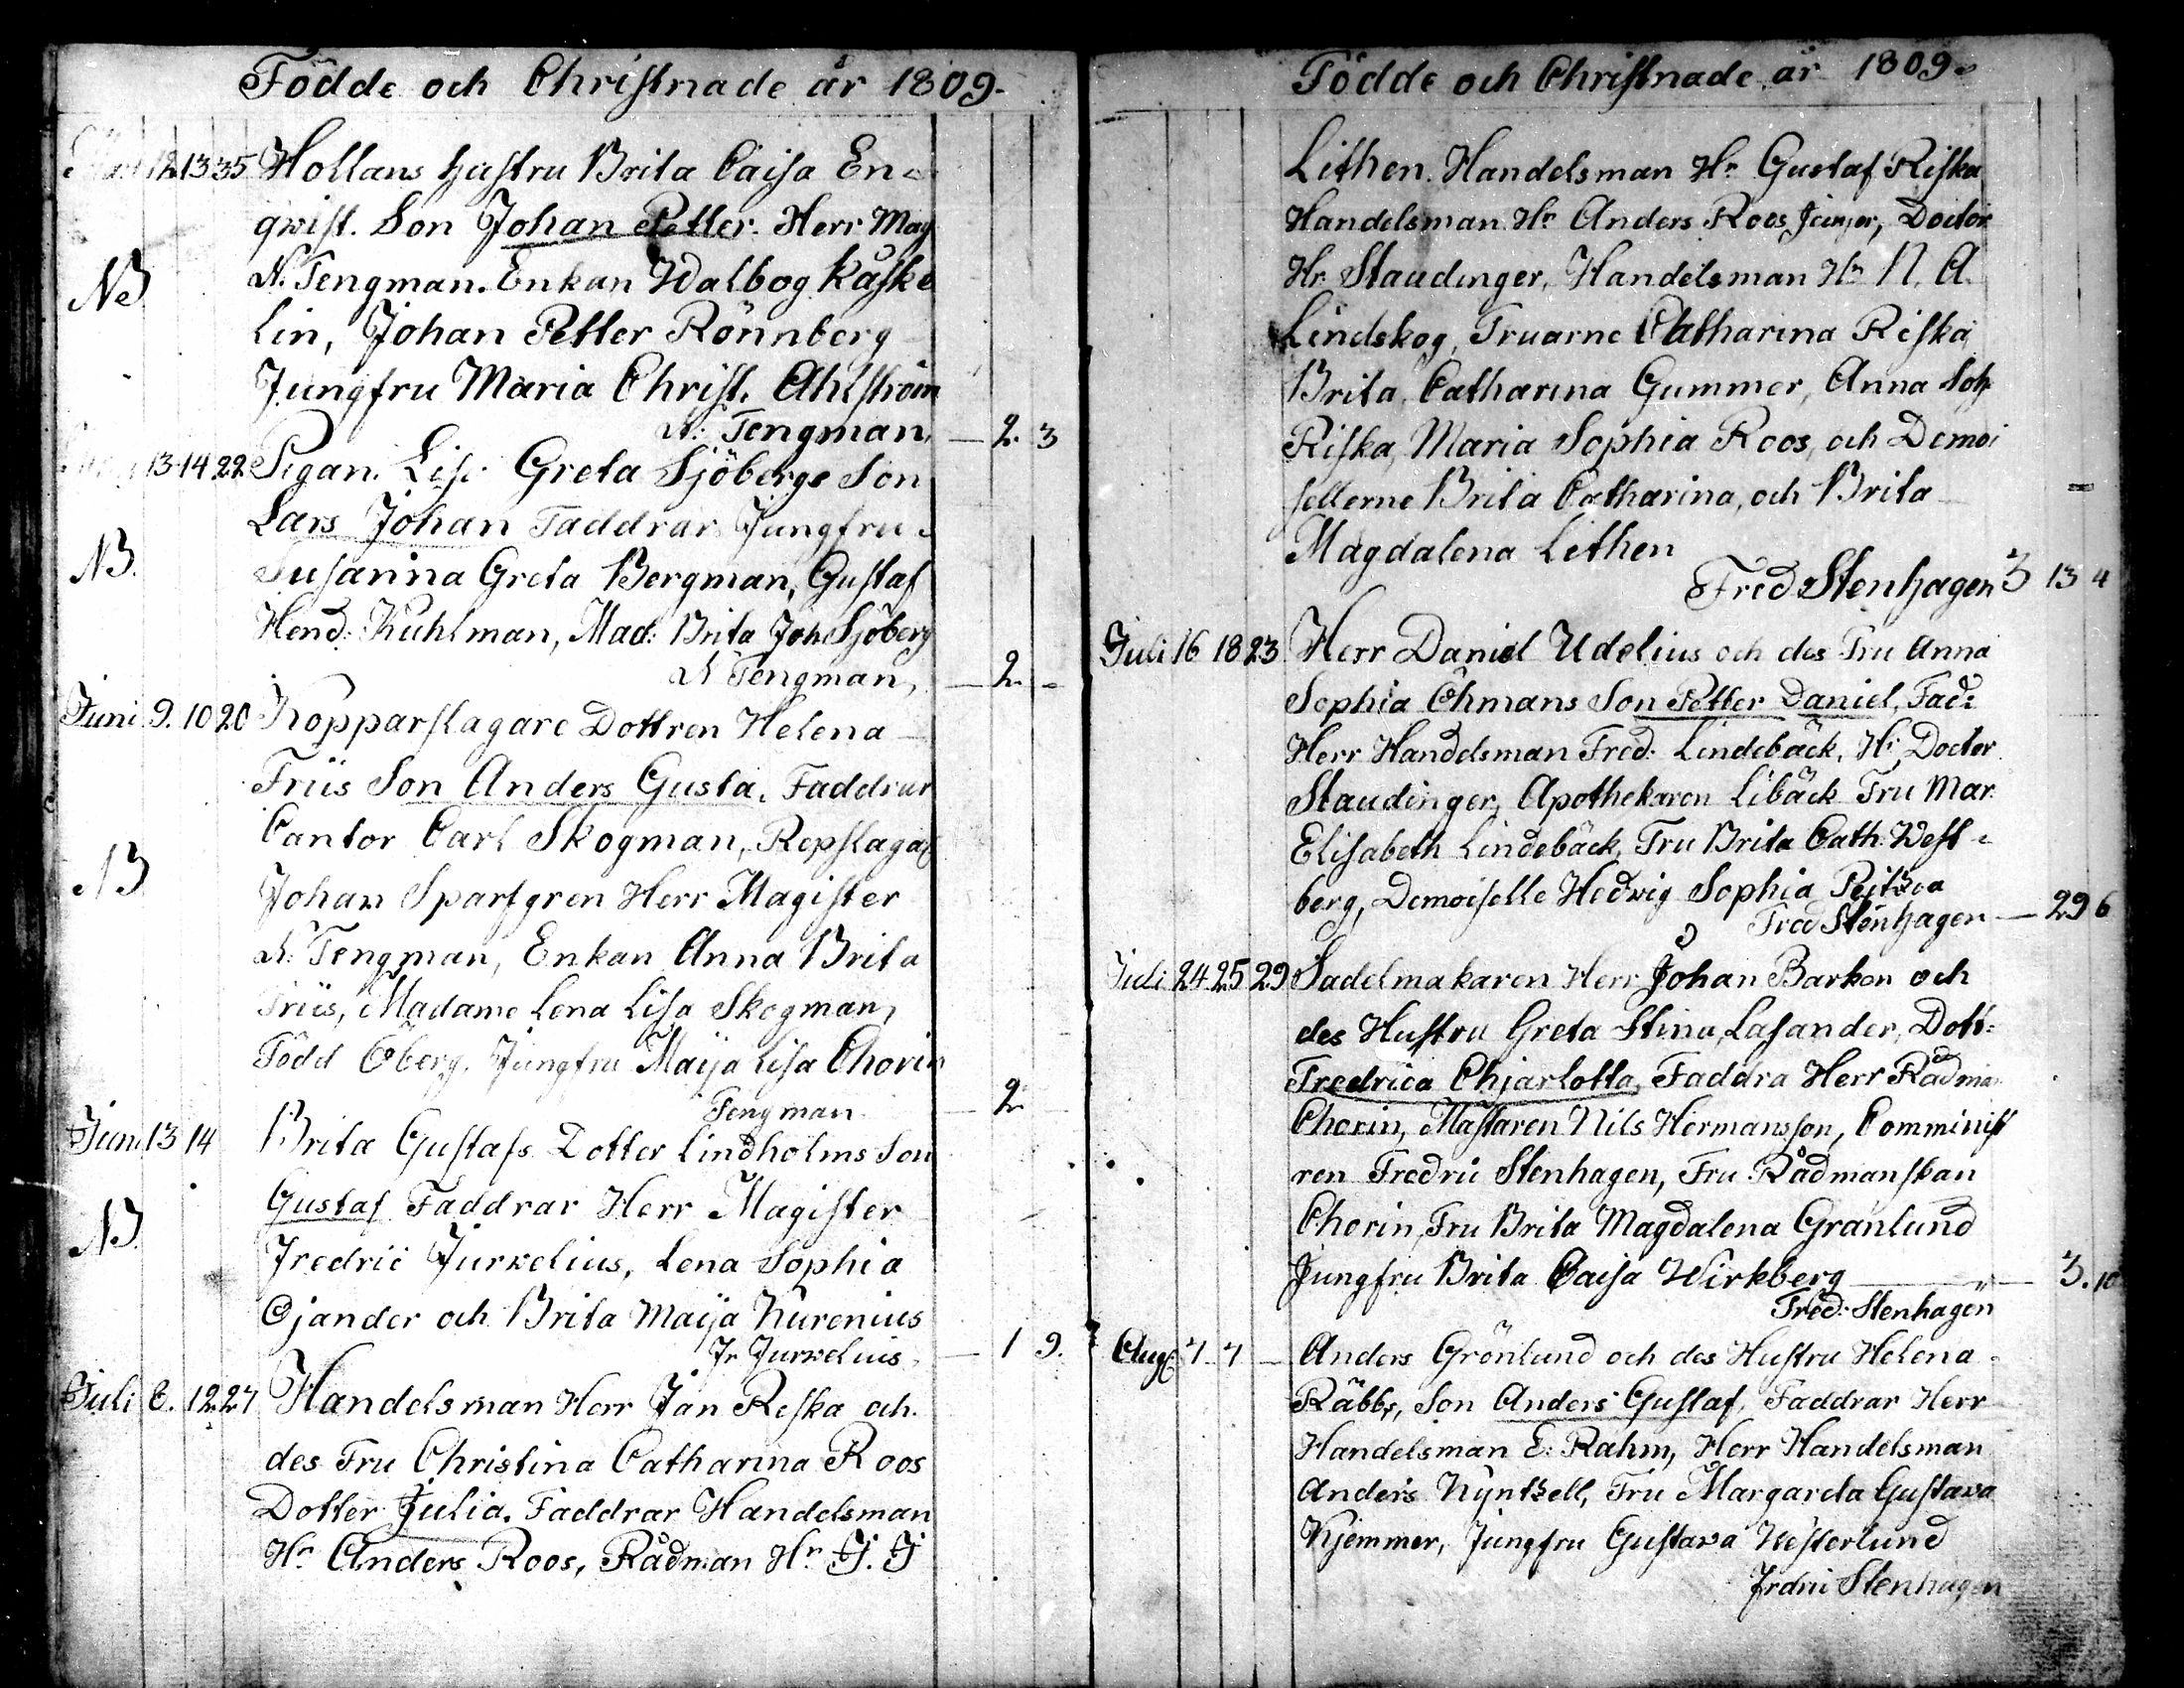 Födde och Christnade år 1809.
12 13 35 Hollans hustru Brita Caisa En-
qvist. Son Johan Petter. Herr Mag
N. Tengman. Enkan Walbog Kaske
NB
lin, Johan Petter Rönnberg
Jungfru Maria Christ. Ahlström
N: Tengman, — 2. 3
13 14 22 Pigan. Lis. Greta Sjöbergs Son
Lars Johan Faddrar Jungfru
NB.
Susanna Greta Bergman, Gustaf
Hend: Kuhlman, Mad: Brita Joh Sjöberg
N Tengman, — 2. -
Juni 9. 10 20 Kopparslagare Dottren Helena
Friis Son Anders Gusta. Faddrar
Cantor Carl Skogman, Repslagar
NB
Johan Sparfgren Herr Magister
N: Tengman, Enkan Anna Brita
Friis, Madame Lena Lisa Skogman,
Född Öberg. Jungfru Maija Lisa Chorin
Tengman — 2
Juni 13 14 Brita Gustafs Dotter Lindholms Son
Gustaf Faddrar Herr Magister
NB
Fredric Jurvelius, Lena Sophia
Ojander och Brita Maija Kurenius
Fr Jurvelius, — 1 9.
Juli 6. 12 27 Handelsman Herr Jan Reska och
des Fru Christina Catharina Roos
Dotter Julia. Faddrar Handelsman
Hr Anders Roos, Rådman Hr J. J
Födde och Christnade år 1809.
Lithen. Handelsman Hr Gustaf Riska
Handelsman Hr Anders Roos Junjor, Doctor
Hr Staudinger, Handelsman Hr N. A.
Lindskog, Fruarne Catharina Riska
Brita Catharina Gummer, Anna Soph
Riska, Maria Sophia Roos, och Demoi
sellerne Brita Catharina, och Brita
Magdalena Lithen
Fred Stenhagen 3 13 4
Juli 16 18 23 Herr Daniel Udelius och des Fru Anna
Sophia Öhmans Son Petter Daniel, Fad:
Herr Handelsman Fred: Lindebäck, Hr Doctor
Staudinger, Apothekaren Libäck Fru Mar.
Elisabeth Lindebäck, Fru Brita Cath: West-
berg, Demoiselle Hedvig Sophia Peitzoa
Fred Stenhagen — 29 6
Juli 24 25 29 Sadelmakaren Herr Johan Barken och
des Hustru Greta Stina Lasander, Dott:
Fredrica Chjarlotta, Faddra Herr Rådman
Chorin, Mästaren Nils Hermansson, Comminist
ren Fredric Stenhagen, Fru Rådmanskan
Chorin, Fru Brita Magdalena Granlund
Jungfru Brita Caisa Wirkberg — 3. 10
Fred: Stenhagen
Aug 7 7 — Anders Grönlund och des Hustru Helena
Räbbs, Son Anders Gustaf, Faddrar Herr
Handelsman E: Rahm, Herr Handelsman
Anders Kyntzell, Fru Margareta Gustava
Kjemmer, Jungfru Gustava Westerlund
Frdric Stenhagen